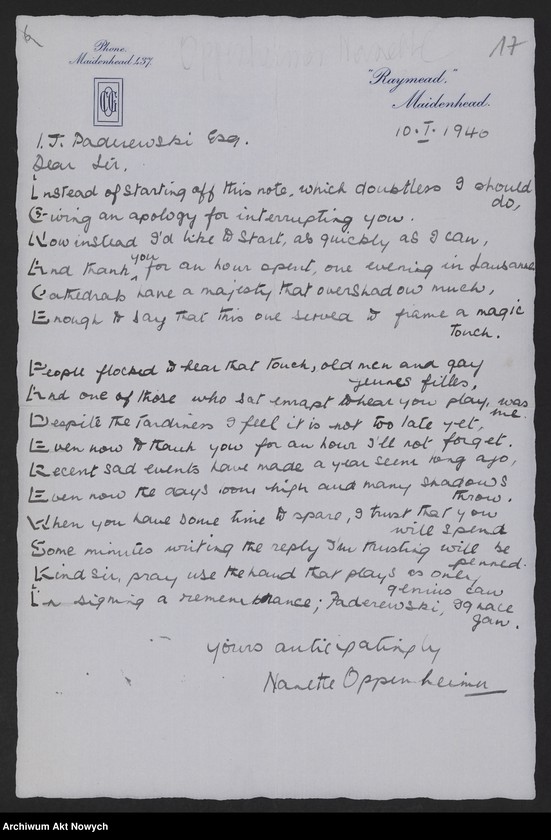 6
17
Phone.
Maidenhead 437.
"Raymead."
Maidenhead.
10.I.1940
I. J. Paderewski Esq.
Dear Sir,
Instead of starting off this note, which doubtless I should
do,
Giving an apology for interrupting you.
Now instead I'd like to start, as quickly as I can,
And thank you for an hour spent, one evening in Lausanne
Cathedrals have a majesty that overshadow much,
Enough to say that this one served to frame a magic
touch.
People flocked to hear that touch, old men and gay
jeunes filles,
And one of those who sat enrapt to hear you play, was
me.
Despite the tardiness I feel it is not too late yet,
Even now to thank you for an hour I'll not forget.
Recent sad events have made a year seem long ago,
Even now the days loom high and many shadows
throw.
When you have some time to spare, I trust that you
will spend
Some minutes writing the reply I'm trusting will be
penned.
Kind sir, pray use the hand that plays as only
genius can
In signing a remembrance; Paderewski, Ignace
Jan.
Yours anticipatingly
Nanette Oppenheimer
Archiwum Akt Nowych